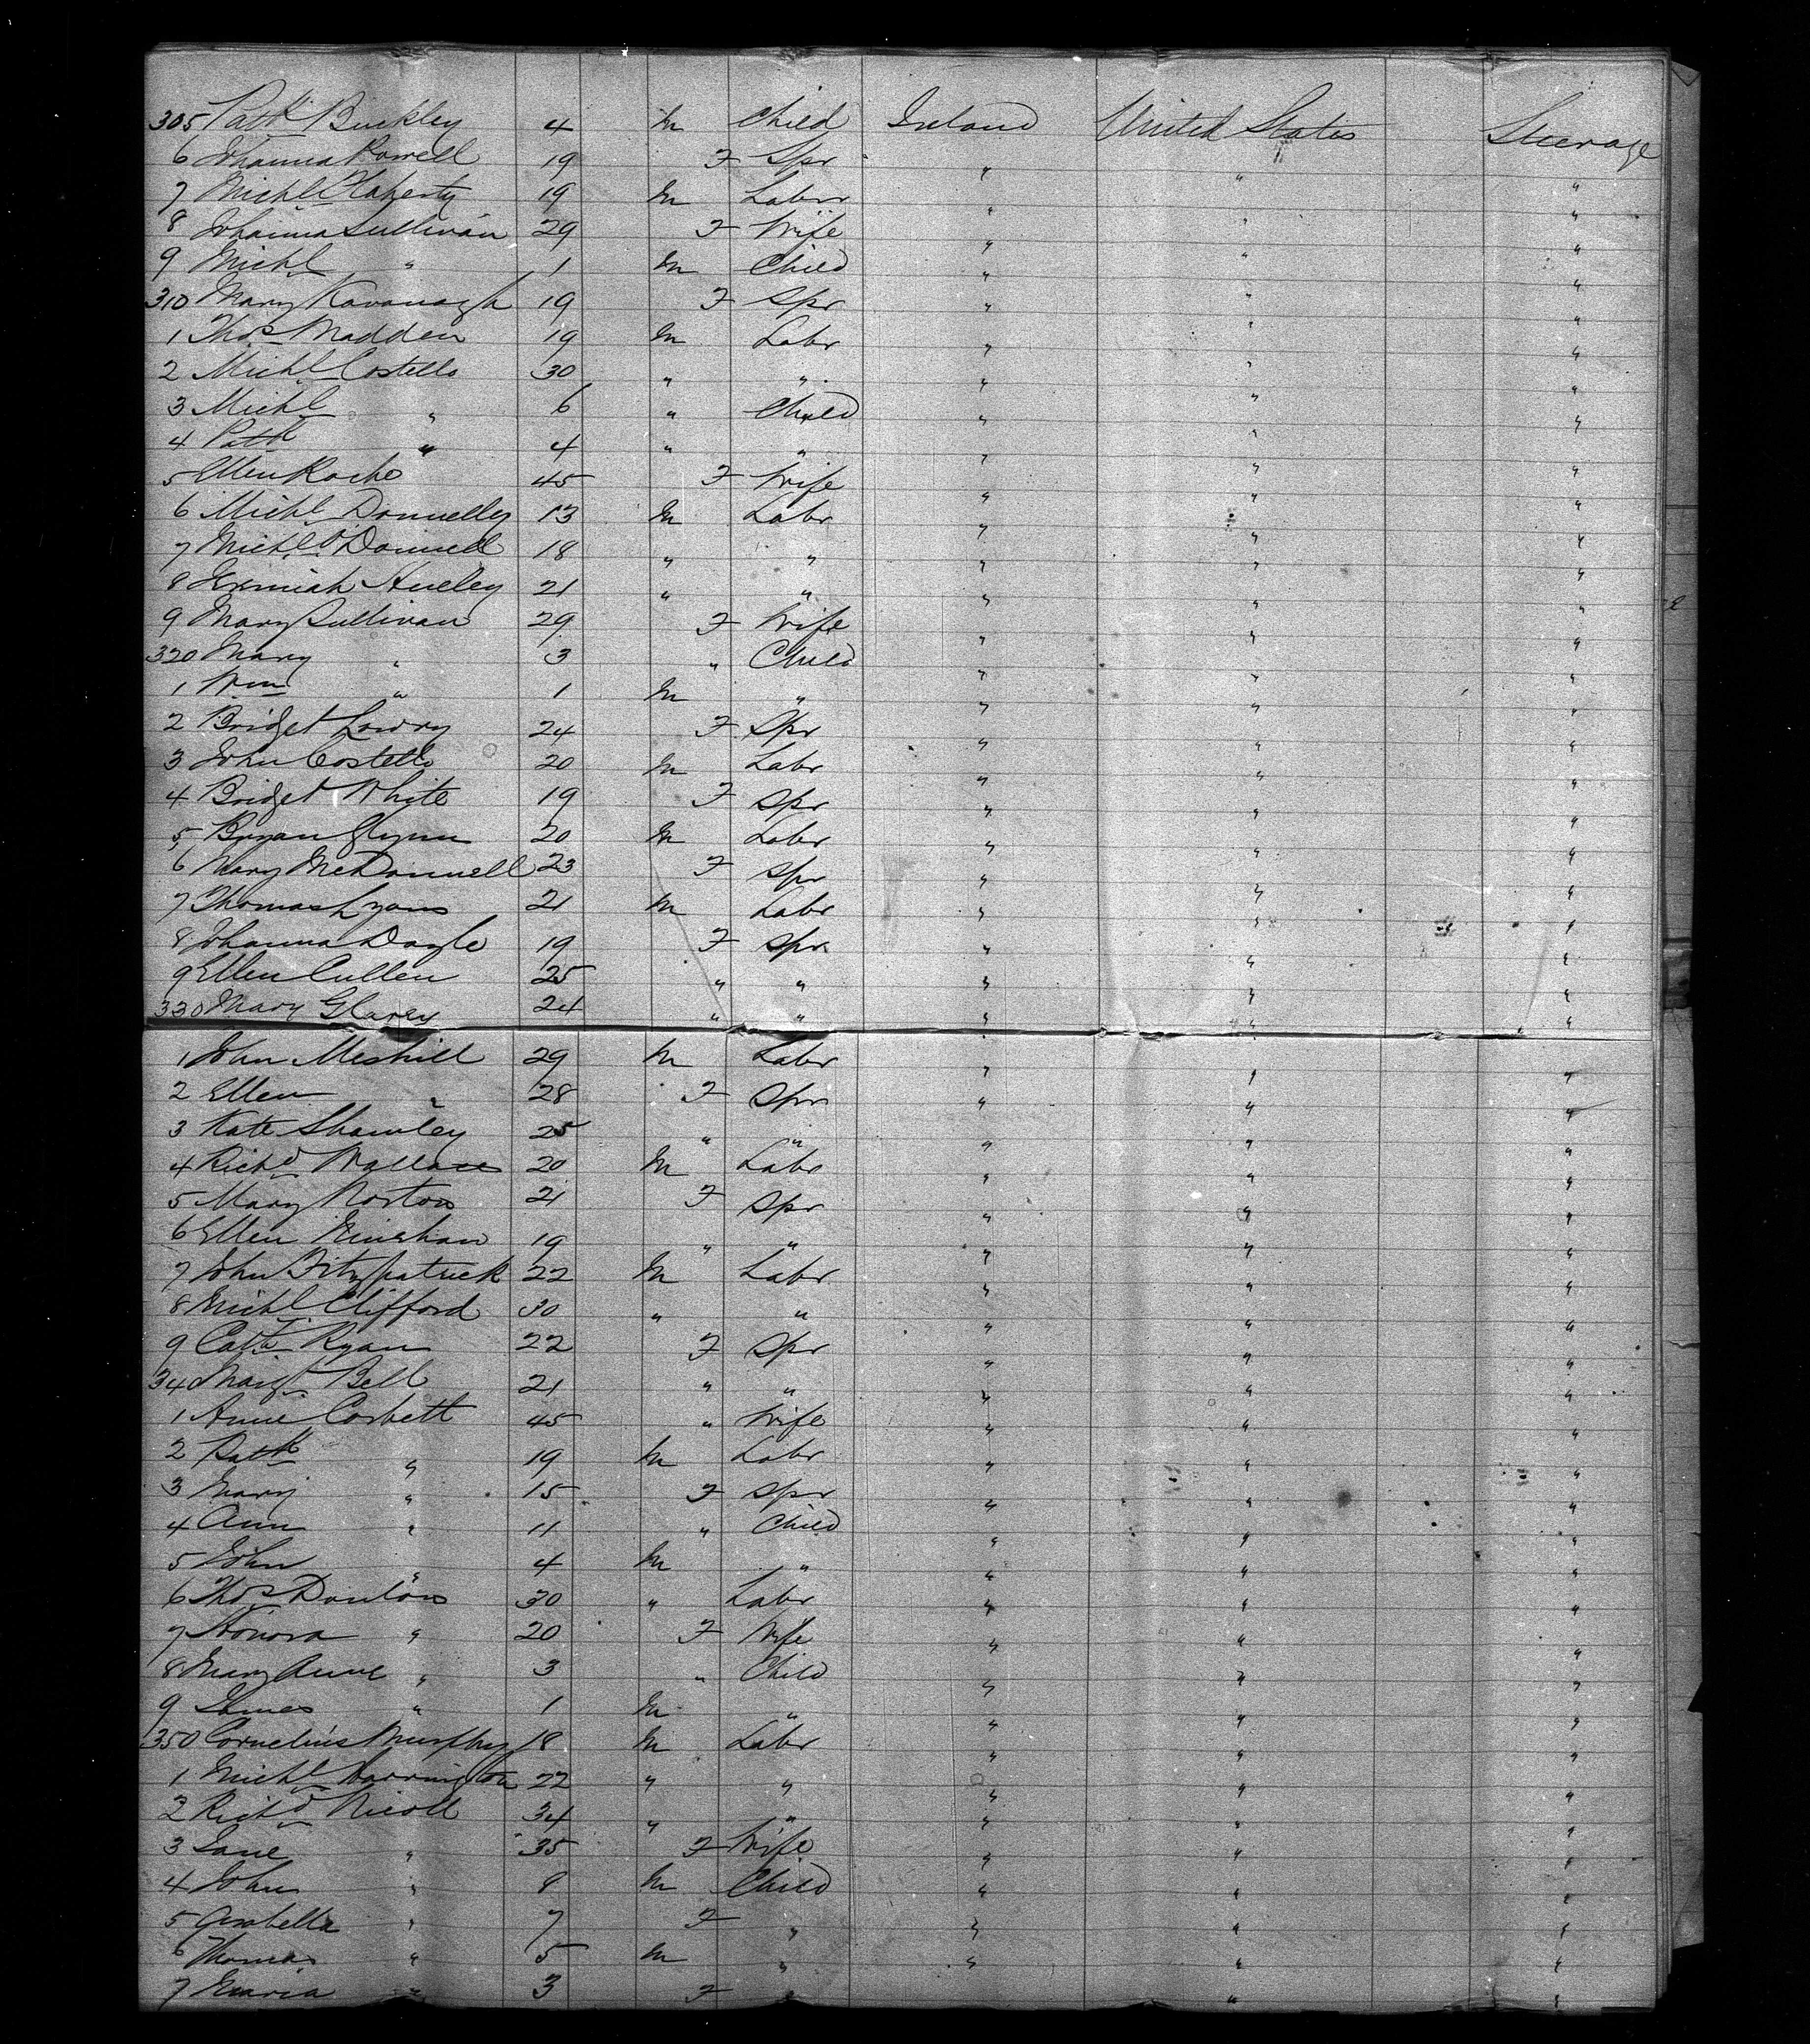 305 Patk Buckley 4 M Child Ireland United States Steerage
6 Johanna Powell 19 F Spr " " "
7 Michl Flaherty 19 M Labr " " "
8 Johanna Sullivan 29 F Wife " " "
9 Michl " 1 M Child " " "
310 Mary Kavanagh 19 F Spr " " "
1 Thos Madden 19 M Labr " " "
2 Michl Costello 30 " " " " "
3 Michl " 6 " Child " " "
4 Patk " 4 " " " " "
5 Ellen Roche 45 F Wife " " "
6 Michl Donnelly 13 M Labr " " "
7 Michl O'Donnell 18 " " " " "
8 Jeremiah Hurley 21 " " " " "
9 Mary Sullivan 29 F Wife " " "
320 Mary " 3 " Child " " "
1 Wm " 1 M " " " "
2 Bridget Lowry 24 F Spr " " "
3 John Costello 20 M Labr " " "
4 Bridget White 19 F Spr " " "
5 Bryan Glynn 20 M Labr " " "
6 Mary McDonnell 23 F Spr " " "
7 Thomas Lyons 21 M Labr " " "
8 Johanna Doyle 19 F Spr " " "
9 Ellen Cullen 25 " " " " "
330 Mary Glavey 24 " " " " "
1 John Meskill 29 M Labr " " "
2 Ellen " 28 F Spr " " "
3 Kate Shawley 25 " " " " "
4 Richd Wallace 20 M Labr " " "
5 Mary Norton 21 F Spr " " "
6 Ellen 19 " " " " "
7 John Fitzpatrick 22 M Labr " " "
8 Michl Clifford 30 " " " " "
9 Cath Ryan 22 F Spr " " "
340 Margt Bell 21 " " " " "
1 Anne Corbett 45 " Wife " " "
2 Patk " 19 M Labr " " "
3 Mary " 15 F Spr " " "
4 Ann " 11 " Child " " "
5 John " 4 M " " " "
6 Thos Donlon 30 " Labr " " "
7 Honora " 20 F Wife " " "
8 Mary Anne " 3 " Child " " "
9 James " 1 M " " " "
350 Cornelius Murphy 18 M Labr " " "
1 Michl Harrington 22 " " " " "
2 Richd Nicoll 34 " " " " "
3 Jane " 35 F Wife " " "
4 John " 8 M Child " " "
5 Arabella " 7 F " " " "
6 Thomas " 5 M " " " "
7 Maria " 3 F " " " "